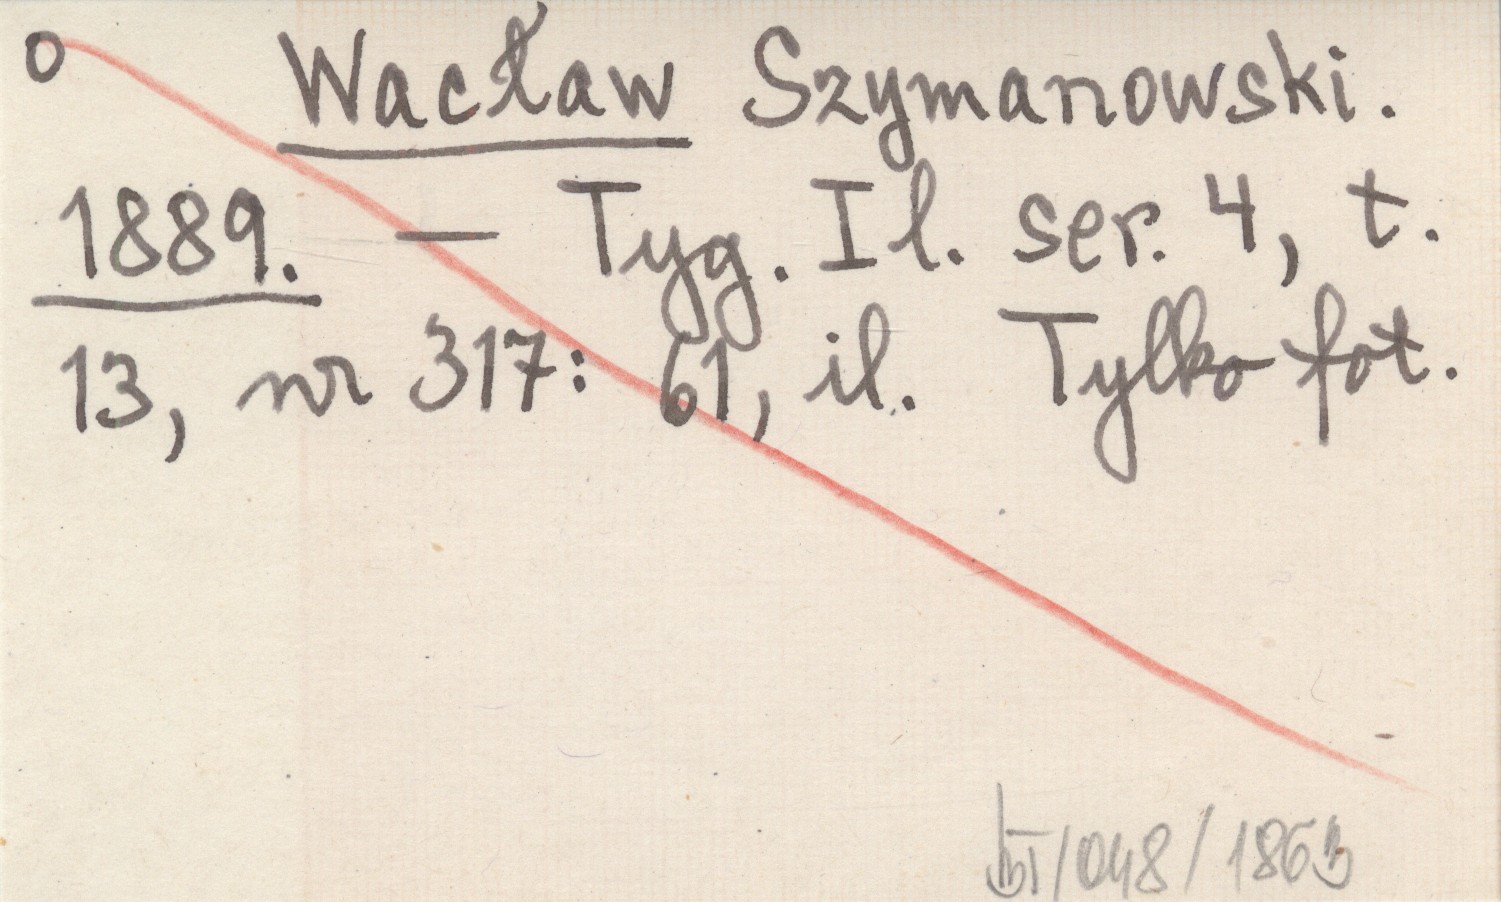 o Wacław Szymanowski.
1889. — Tyg. Il. ser. 4, t.
13, nr 317: 61, il. Tylko fot.
/048/1863